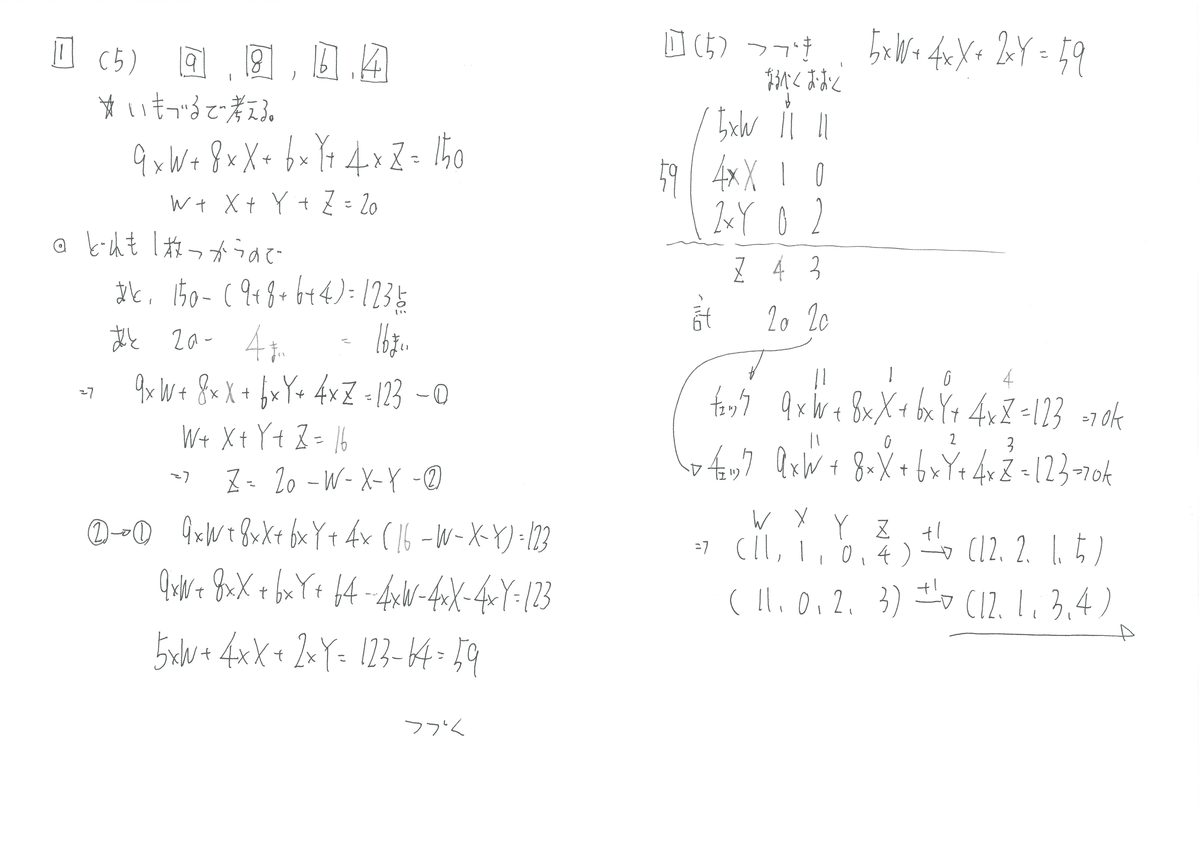 1 (5) 9, 8, 6, 4
☆いもづるで考える。
9×W+8×X+6×Y+4×Z=150
W+X+Y+Z=20
◎どれも1枚つかうので
あと、150-(9+8+6+4)=123点
あと 20- 4まい = 16まい
⇒ 9×W+8×X+6×Y+4×Z=123 -①
W+X+Y+Z=16
⇒ Z=20-W-X-Y -②
②→① 9×W+8×X+6×Y+4×(16-W-X-Y)=123
9×W+8×X+6×Y+64-4×W-4×X-4×Y=123
5×W+4×X+2×Y=123-64=59
つづく
1 (5) つづき、5×W+4×X+2×Y=59
なるべくおおく
5×W 11 11
59 4×X 1 0
2×Y 0 2
Z 4 3
計 20 20
11 1 0 4
チェック 9×W+8×X+6×Y+4×Z=123 ⇒ok
11 0 2 3
チェック 9×W+8×X+6×Y+4×Z=123⇒ok
W X Y Z
⇒ (11, 1, 0, 4) +1→ (12, 2, 1, 5)
(11, 0, 2, 3) +1→ (12, 1, 3, 4)